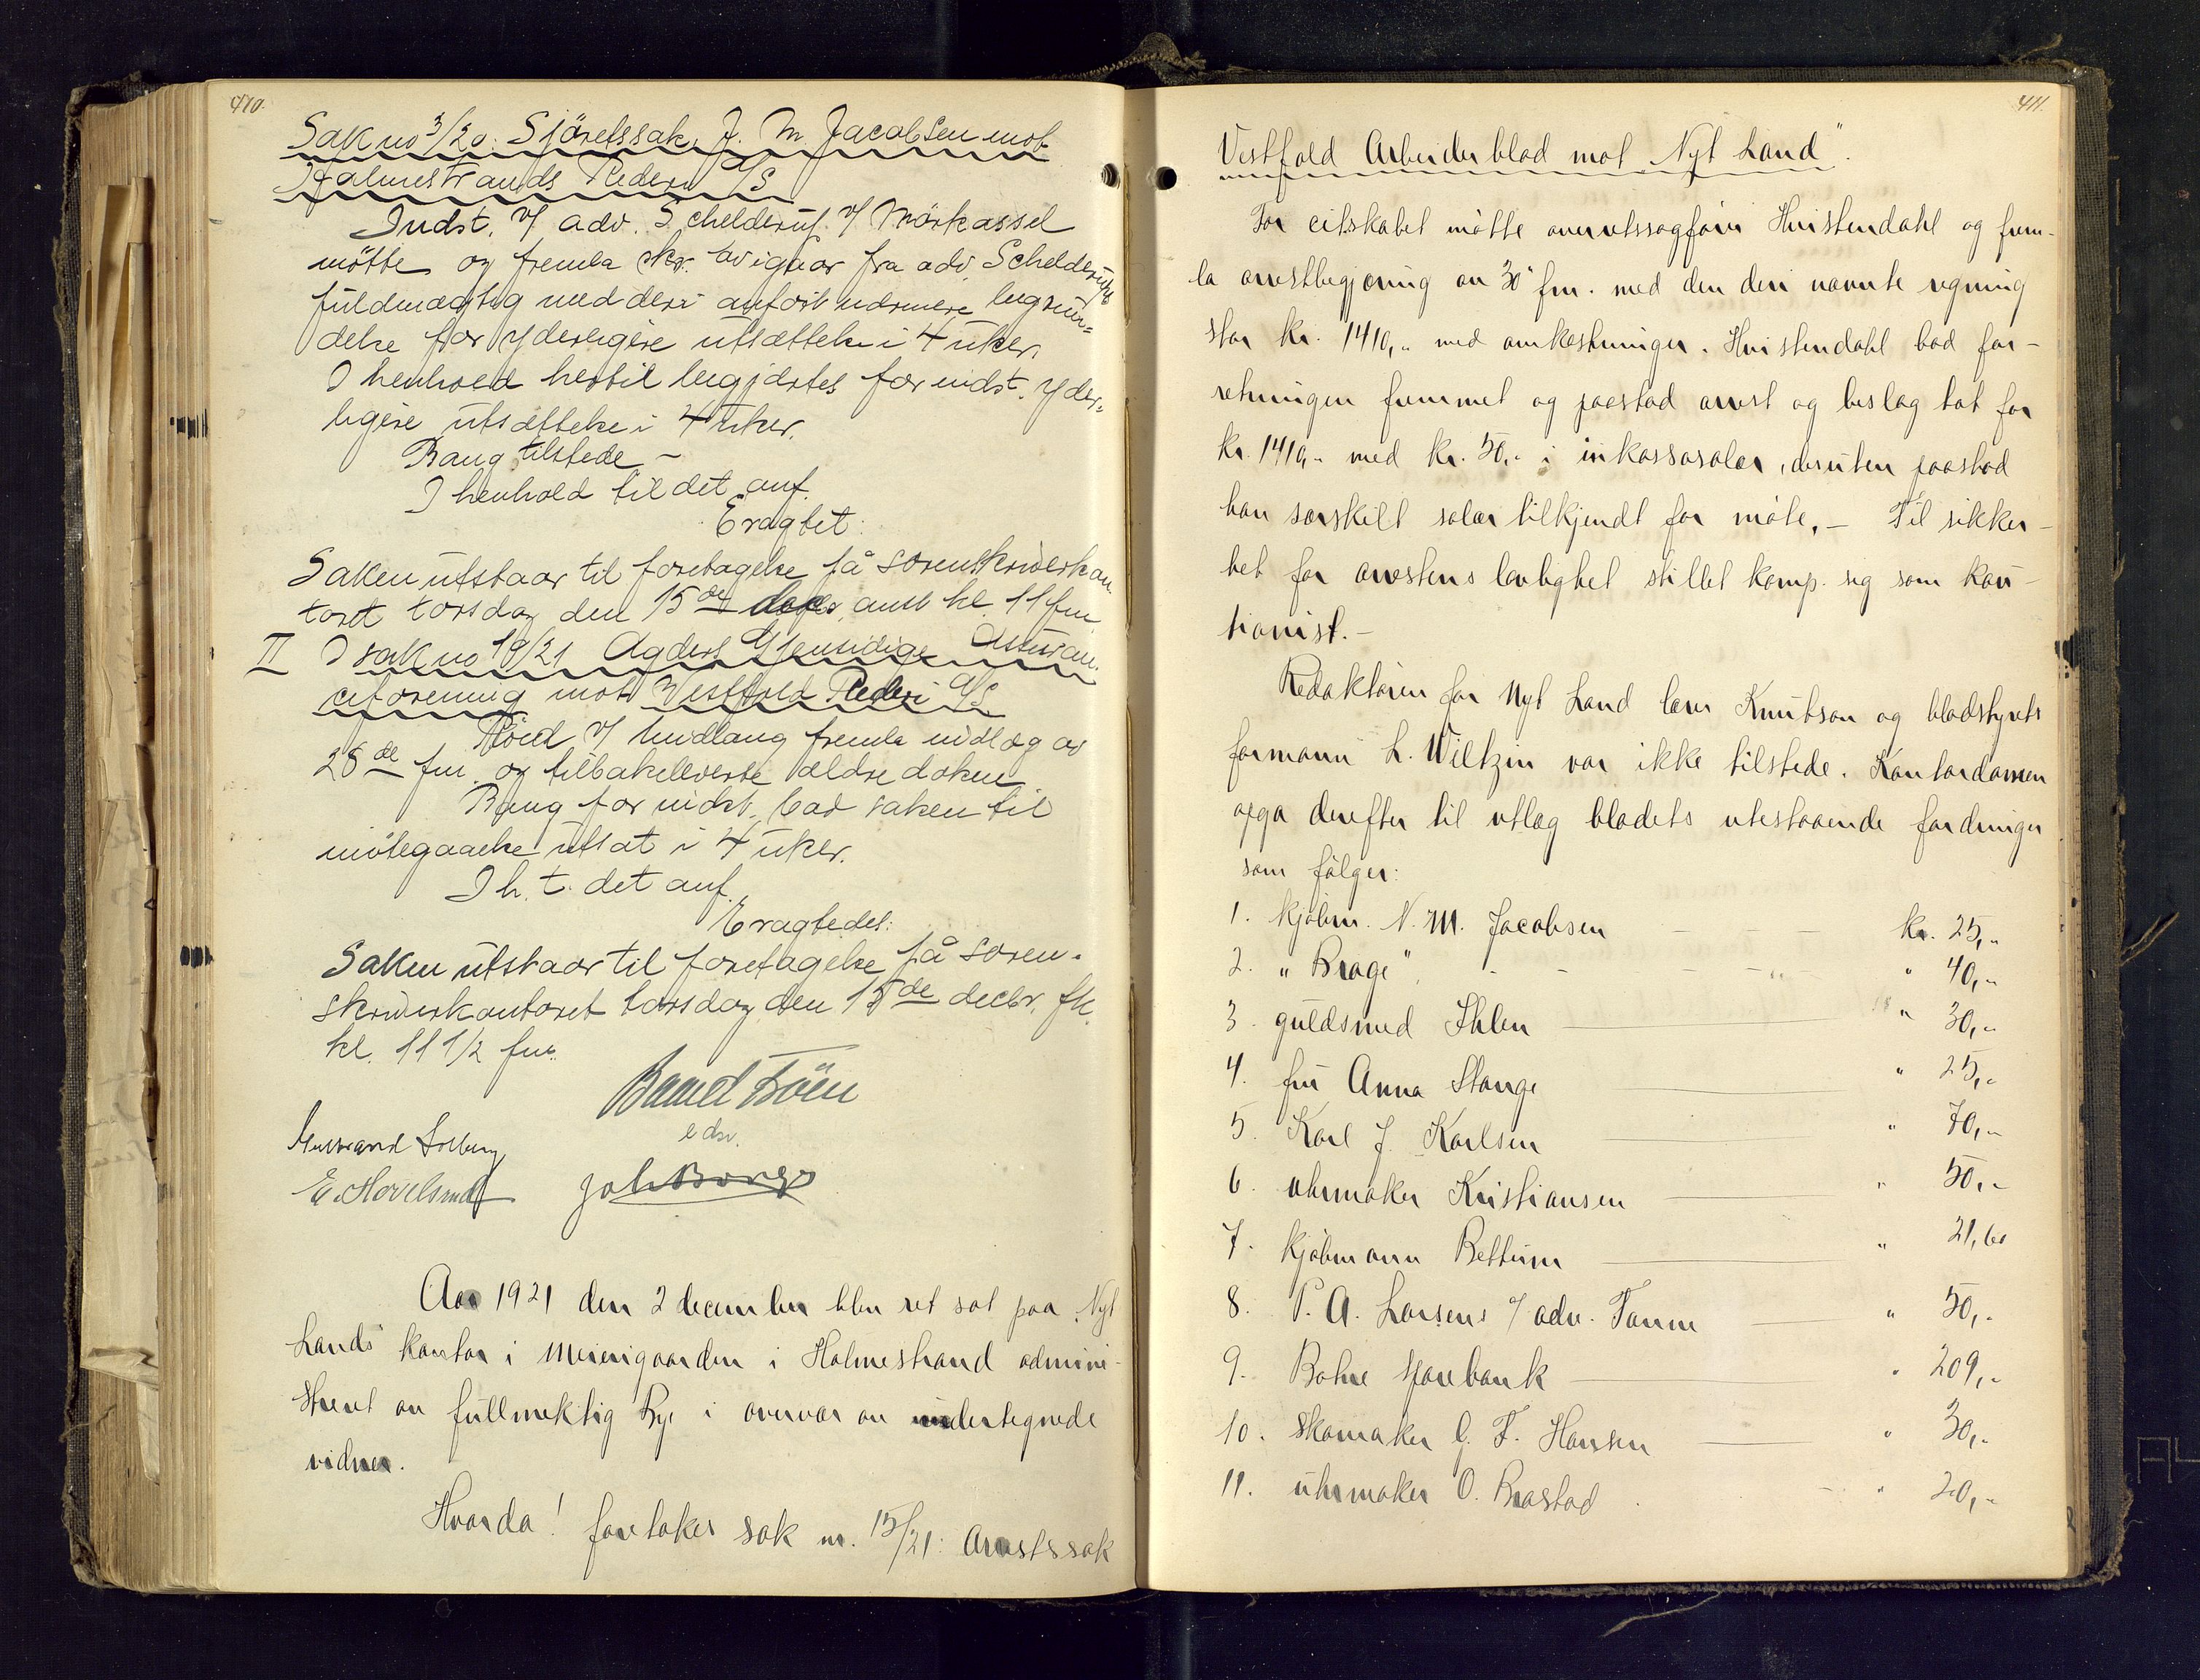 410.
Sak no 3/20. Sjöretssak, J. M. Jacobsen mot
Holmestrands Rederi A/S
Indst. v/ adv. Schelderup v/ Mörkassel
mötte og fremla skr. av igaar fra adv. Schelderups
fuldmægtig med deri anfört nærmere begrun=
delse for yderligere utsættelse i 4 uker.
I henhold hertil begjærtes for indst. yder=
ligere utsættelse i 4 uker.
Bang tilstede –
I henhold til det anf.
Eragtet:
Saken utstaar til foretagelse på sorenskriverkon-
toret torsdag den 15de decbr. anst kl. 11 fm.
II I sak no 19/21 Agders Gjensidige Assuran-
ceforening mot Vestfold Rederi A/S
Röed v/ fremla indlæg av
28de fm. og tilbakeleverte ældre dokum.
Bang for indst. bad saken til
imötegaaelse utsat i 4 uker.
I h. t. det anf.
Eragtedes:
Saken utstaar til foretagelse på soren-
skriverkontoret torsdag den 15de decbr. fk.
kl. 11 1/2 fm.
edsv.
Joh Borge
Aar 1921 den 2 december blev ret sat paa "Nyt
Lands" kontor i Meierigaarden i Holmestrand admini-
streret av fullmektig Rye i overvær av undertegnede
vidner.
Hvorda! foretokes sak nr. 15/21: Arrestssak
411.
Vestfold Arbeiderblad mot "Nyt Land".
For citskabet mötte overretssagförer Hvistendahl og frem-
la arrestbegjæring av 30 fm. med den deri nævnte regning
stor kr. 1410,- med omkostninger. Hvistendahl bad for-
retningen fremmet og paastod arrest og beslag tat for
kr. 1410,- med kr. 50,- i inkassosalær, desuten paastod
han særskilt salær tilkjendt for möte. – Til sikker-
het for arrestens lovlighet stillet komp. sig som kau-
tionist. –
Redaktören for Nyt Land lærer Knutson og bladstyrets
formann L. Wiltzin var ikke tilstede. Kontordamen
opga derefter til utlæg bladets utestaaende fordringer
som fölger:
1. Kjöbm. N. M. Jacobsen kr. 25,-
2. "Brage" " 40,-
3. guldsmed Ihlen " 30,-
4. fru Anna Stange " 25,-
5. Karl J. Karlsen " 70,-
6. uhrmaker Kristiansen " 50,-
7. Kjöbmann Bettum " 21,60
8. P. A. Larsens v/ adv. Tanne " 50,-
9. Botne sparebank " 209,-
10. Skomaker C. F. Hansen " 30,-
11. uhrmaker O. Brastad " 20,-